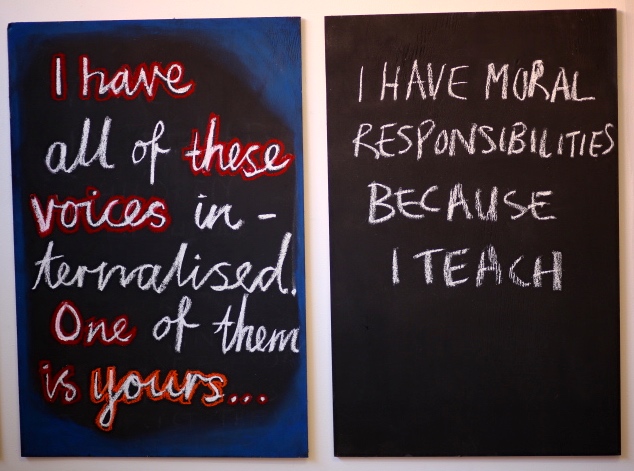 I have
all of these
voices in-
ternalised.
One of them
is yours...
I HAVE MORAL
RESPONSIBILITIES
BECAUSE
I TEACH